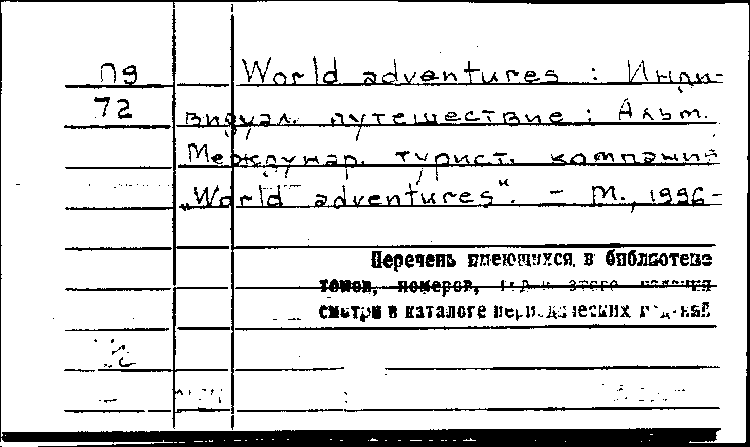 П9 World adventures : Инди-
72 видуал. путешествие : Альм.
Междунар. турист. компания
„World adventures“. – М., 1996-
Перечень имеющихся в библиотеке
томов, номеров,
смотри в каталоге периодических изданий